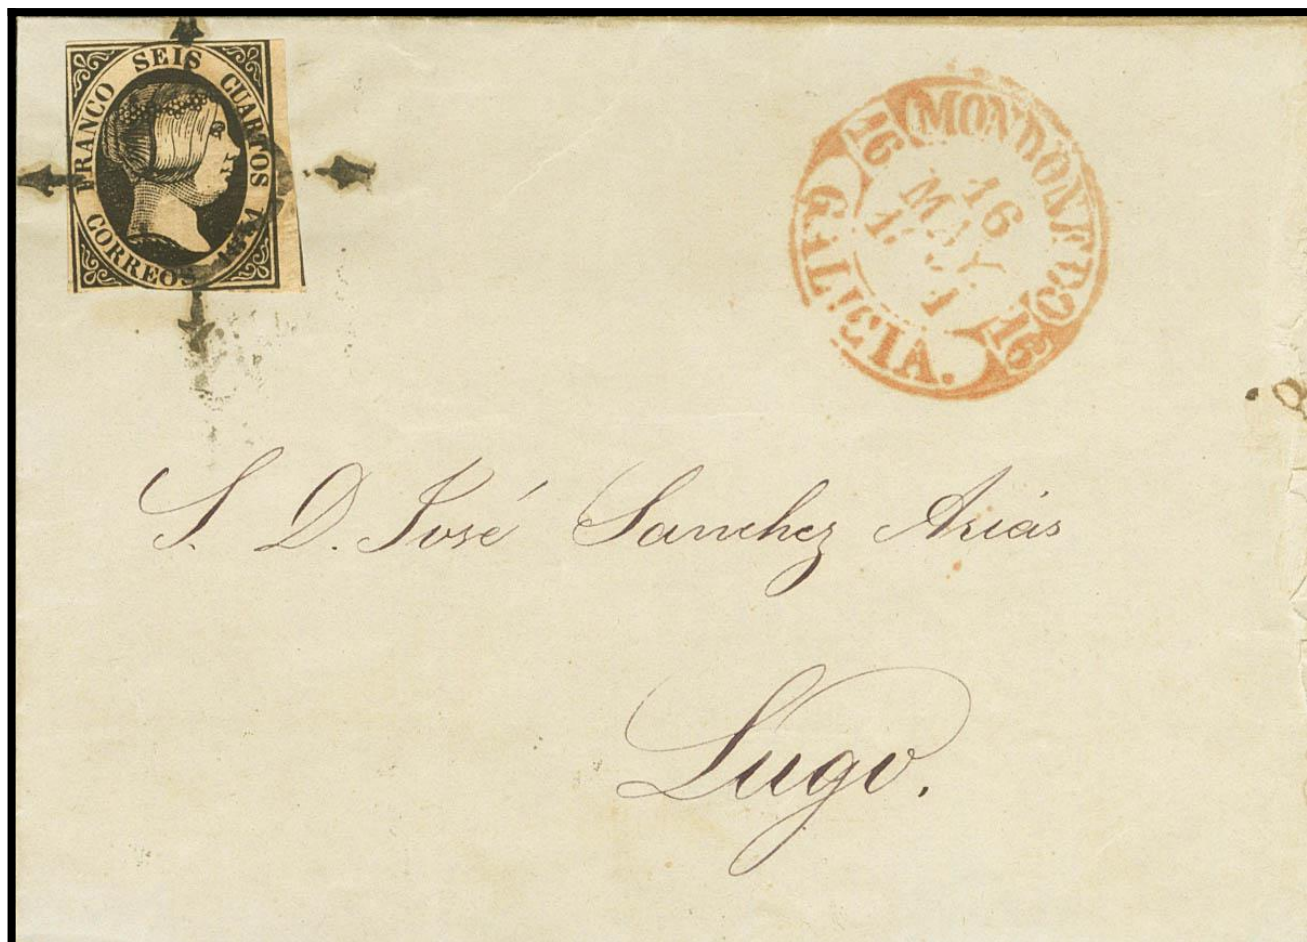 FRANCO SEIS CUARTOS
CORREOS 1851
MONDOÑEDO
16
16 MAY 1851
16
GALICIA.
S. D. José Sanchez Arias
Lugo.